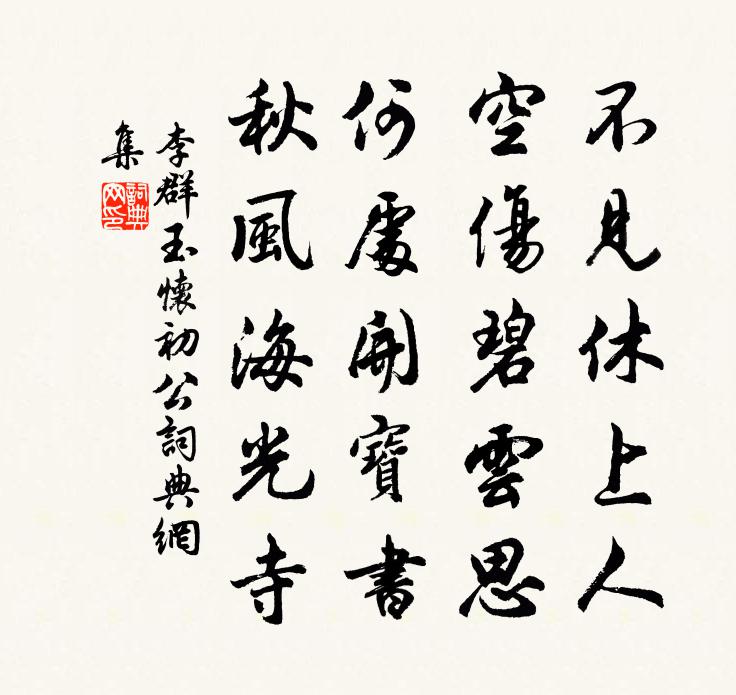 不見休上人
空傷碧雲思
何處開寶書
秋風海光寺
李群玉懷初公詞典網
集
詞典网印